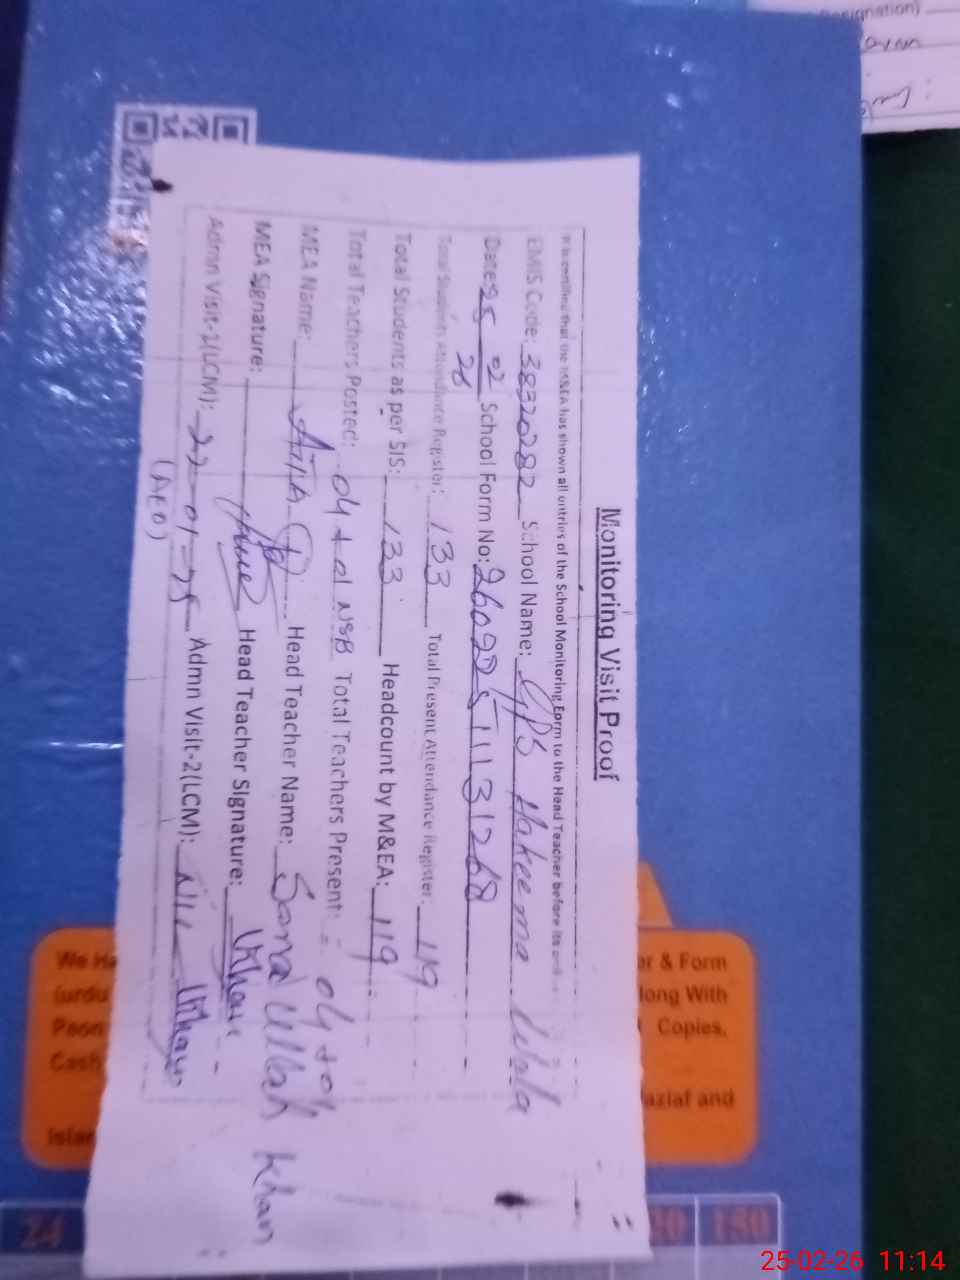 Monitoring Visit Proof
It is certified that the M&EA has shown all entries of the School Monitoring Form to the Head Teacher before its
EMIS Code: 38320282 School Name: GPS Hakeema Wala
Date: 25 02 26 School Form No: 26022511131268
Total Students Attendance Register: 133 Total Present Attendance Register: 119
Total Students as per SIS: 133 Headcount by M&EA: 119
Total Teachers Posted: 04+01 NSB Total Teachers Present: 04+01
MEA Name: Head Teacher Name: Sana Ullah Khan
MEA Signature: Head Teacher Signature:
Admn Visit-1(LCM): 22-01-25 Admn Visit-2(LCM): Nil
(AEO)
We Ha
(urdu
Peon
Cash
Islam
or & Form
long With
Copies,
Naziaf and
24
180
25-02-26 11:14